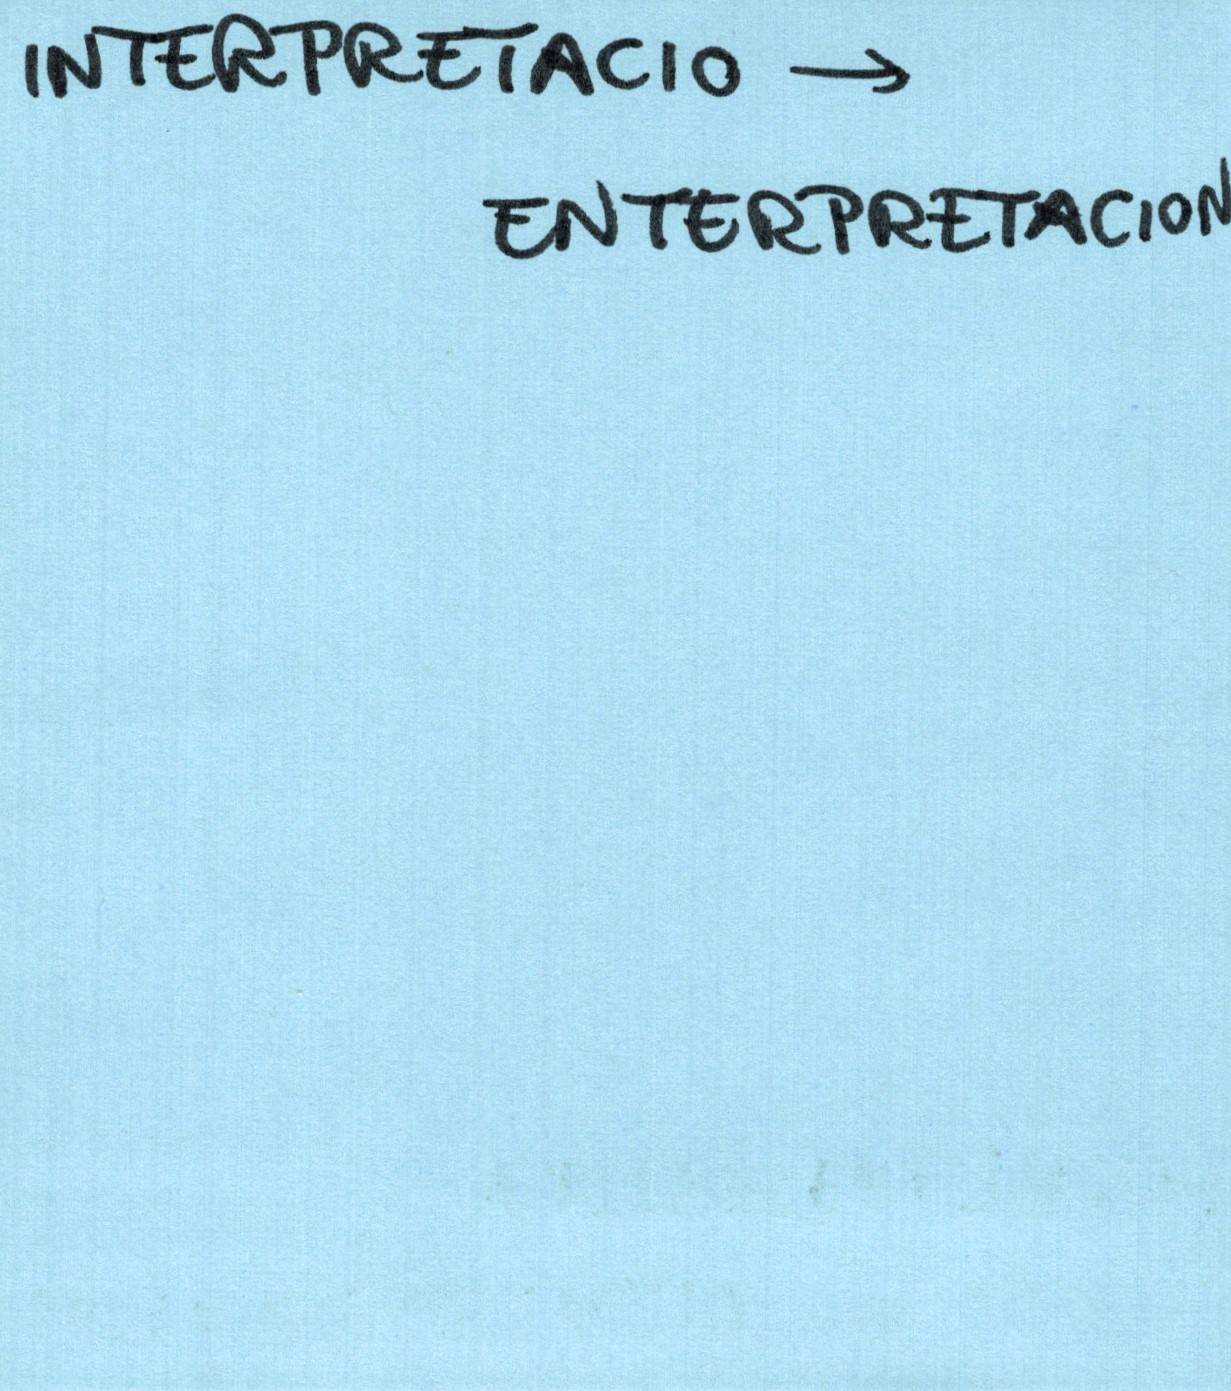 INTERPRETACIO →
ENTERPRETACION